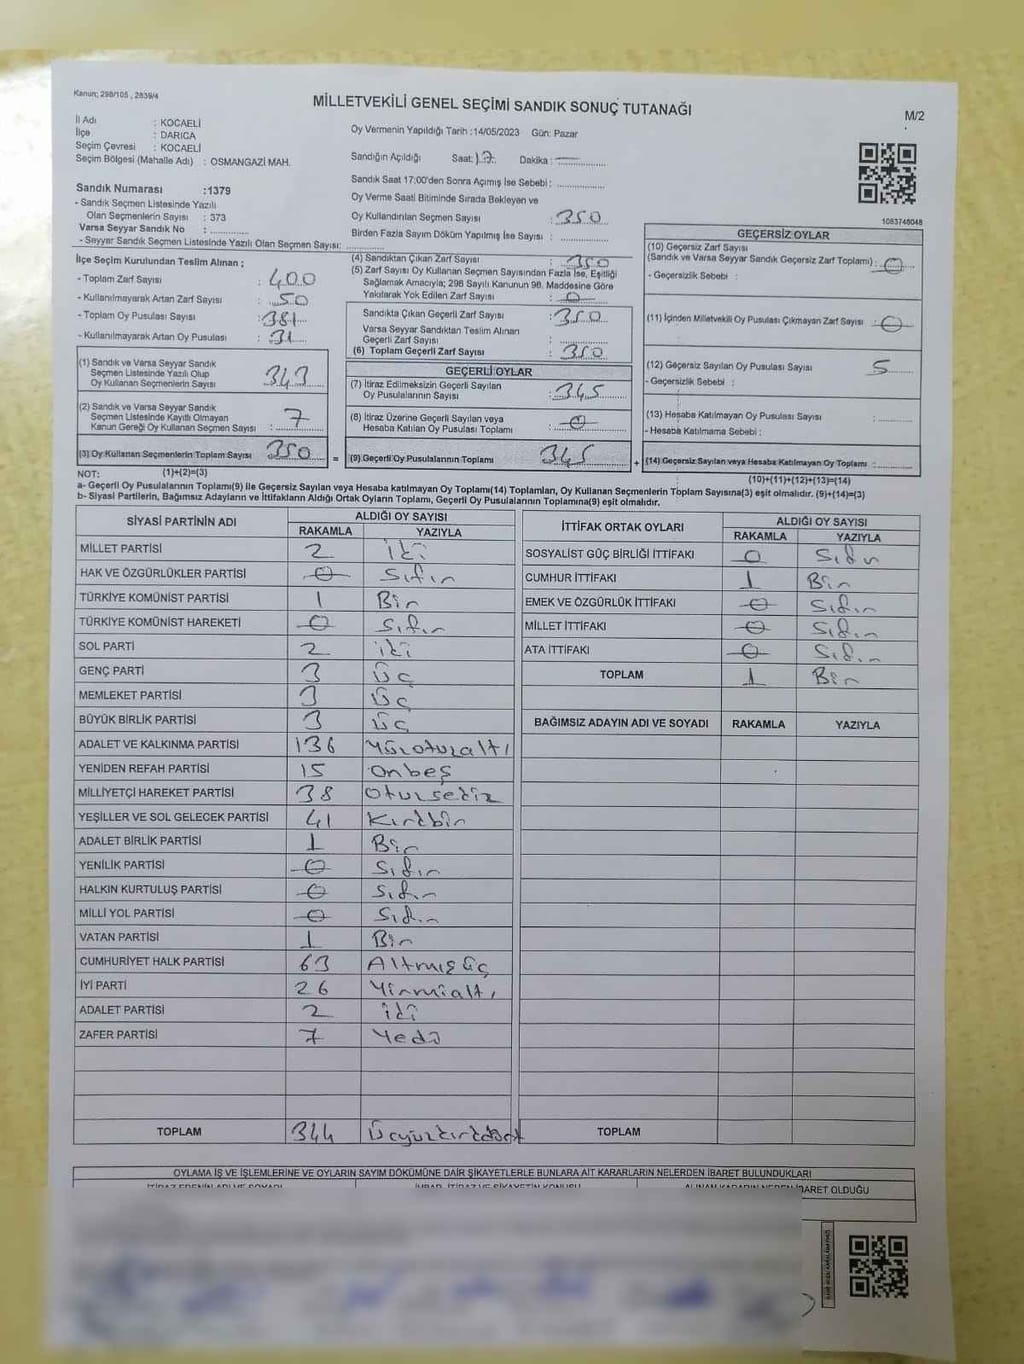 Kanun; 298/105 , 2839/4
MİLLETVEKİLİ GENEL SEÇİMİ SANDIK SONUÇ TUTANAĞI
M/2
İl Adı : KOCAELİ
İlçe : DARICA
Seçim Çevresi : KOCAELİ
Seçim Bölgesi (Mahalle Adı) : OSMANGAZİ MAH.
Sandık Numarası :1379
- Sandık Seçmen Listesinde Yazılı
Olan Seçmenlerin Sayısı : 373
Varsa Seyyar Sandık No :
- Seyyar Sandık Seçmen Listesinde Yazılı Olan Seçmen Sayısı:
Oy Vermenin Yapıldığı Tarih :14/05/2023 Gün: Pazar
Sandığın Açıldığı Saat: 17 Dakika :
Sandık Saat 17:00'den Sonra Açımış İse Sebebi :
Oy Verme Saati Bitiminde Sırada Bekleyen ve
Oy Kullandırılan Seçmen Sayısı : 350
Birden Fazla Sayım Döküm Yapılmış İse Sayısı :
1083748048
İlçe Seçim Kurulundan Teslim Alınan ;
- Toplam Zarf Sayısı : 400
- Kullanılmayarak Artan Zarf Sayısı : 50
- Toplam Oy Pusulası Sayısı : 381
- Kullanılmayarak Artan Oy Pusulası : 31
(1) Sandık ve Varsa Seyyar Sandık
Seçmen Listesinde Yazılı Olup
Oy Kullanan Seçmenlerin Sayısı 343
(2) Sandık ve Varsa Seyyar Sandık
Seçmen Listesinde Kayıtlı Olmayan
Kanun Gereği Oy Kullanan Seçmen Sayısı : 7
(3) Oy Kullanan Seçmenlerin Toplam Sayısı 350
(4) Sandıktan Çıkan Zarf Sayısı : 350
(5) Zarf Sayısı Oy Kullanan Seçmen Sayısından Fazla İse, Eşitliği
Sağlamak Amacıyla; 298 Sayılı Kanunun 98. Maddesine Göre
Yakılarak Yok Edilen Zarf Sayısı : 0
Sandıkta Çıkan Geçerli Zarf Sayısı : 350
Varsa Seyyar Sandıktan Teslim Alınan
Geçerli Zarf Sayısı :
(6) Toplam Geçerli Zarf Sayısı : 350
GEÇERLİ OYLAR
(7) İtiraz Edilmeksizin Geçerli Sayılan
Oy Pusulalarının Sayısı : 345
(8) İtiraz Üzerine Geçerli Sayılan veya
Hesaba Katılan Oy Pusulası Toplamı : 0
= (9) Geçerli Oy Pusulalarının Toplamı 345
GEÇERSİZ OYLAR
(10) Geçersiz Zarf Sayısı
(Sandık ve Varsa Seyyar Sandık Geçersiz Zarf Toplamı) : 0
- Geçersizlik Sebebi :
(11) İçinden Milletvekili Oy Pusulası Çıkmayan Zarf Sayısı : 0
(12) Geçersiz Sayılan Oy Pusulası Sayısı : 5
- Geçersizlik Sebebi :
(13) Hesaba Katılmayan Oy Pusulası Sayısı :
- Hesaba Katılmama Sebebi :
+ (14) Geçersiz Sayılan veya Hesaba Katılmayan Oy Toplamı :
NOT: (1)+(2)=(3) (10)+(11)+(12)+(13)=(14)
a- Geçerli Oy Pusulalarının Toplamı(9) ile Geçersiz Sayılan veya Hesaba katılmayan Oy Toplamı(14) Toplamları, Oy Kullanan Seçmenlerin Toplam Sayısına(3) eşit olmalıdır. (9)+(14)=(3)
b- Siyasi Partilerin, Bağımsız Adayların ve İttifakların Aldığı Ortak Oyların Toplamı, Geçerli Oy Pusulalarının Toplamına(9) eşit olmalıdır.
SİYASİ PARTİNİN ADI ALDIĞI OY SAYISI
RAKAMLA YAZIYLA
MİLLET PARTİSİ 2 iki
HAK VE ÖZGÜRLÜKLER PARTİSİ 0 Sıfır
TÜRKİYE KOMÜNİST PARTİSİ 1 Bir
TÜRKİYE KOMÜNİST HAREKETİ 0 Sıfır
SOL PARTİ 2 iki
GENÇ PARTİ 3 Üç
MEMLEKET PARTİSİ 3 Üç
BÜYÜK BİRLİK PARTİSİ 3 Üç
ADALET VE KALKINMA PARTİSİ 136 Yüzotuzaltı
YENİDEN REFAH PARTİSİ 15 Onbeş
MİLLİYETÇİ HAREKET PARTİSİ 38 Otuzsekiz
YEŞİLLER VE SOL GELECEK PARTİSİ 41 Kırkbir
ADALET BİRLİK PARTİSİ 1 Bir
YENİLİK PARTİSİ 0 Sıfır
HALKIN KURTULUŞ PARTİSİ 0 Sıfır
MİLLİ YOL PARTİSİ 0 Sıfır
VATAN PARTİSİ 1 Bir
CUMHURİYET HALK PARTİSİ 63 Altmışüç
İYİ PARTİ 26 Yirmialtı
ADALET PARTİSİ 2 iki
ZAFER PARTİSİ 7 Yedi
TOPLAM 344 Üçyüzkırkdört
İTTİFAK ORTAK OYLARI ALDIĞI OY SAYISI
RAKAMLA YAZIYLA
SOSYALİST GÜÇ BİRLİĞİ İTTİFAKI 0 Sıfır
CUMHUR İTTİFAKI 1 Bir
EMEK VE ÖZGÜRLÜK İTTİFAKI 0 Sıfır
MİLLET İTTİFAKI 0 Sıfır
ATA İTTİFAKI 0 Sıfır
TOPLAM 1 Bir
BAĞIMSIZ ADAYIN ADI VE SOYADI RAKAMLA YAZIYLA
TOPLAM
OYLAMA İŞ VE İŞLEMLERİNE VE OYLARIN SAYIM DÖKÜMÜNE DAİR ŞİKAYETLERLE BUNLARA AİT KARARLARIN NELERDEN İBARET BULUNDUKLARI
İTİRAZ EDENİN ADI VE SOYADI İHBAR, İTİRAZ VE ŞİKAYETİN KONUSU ALINAN KARARIN NEDEN İBARET OLDUĞU